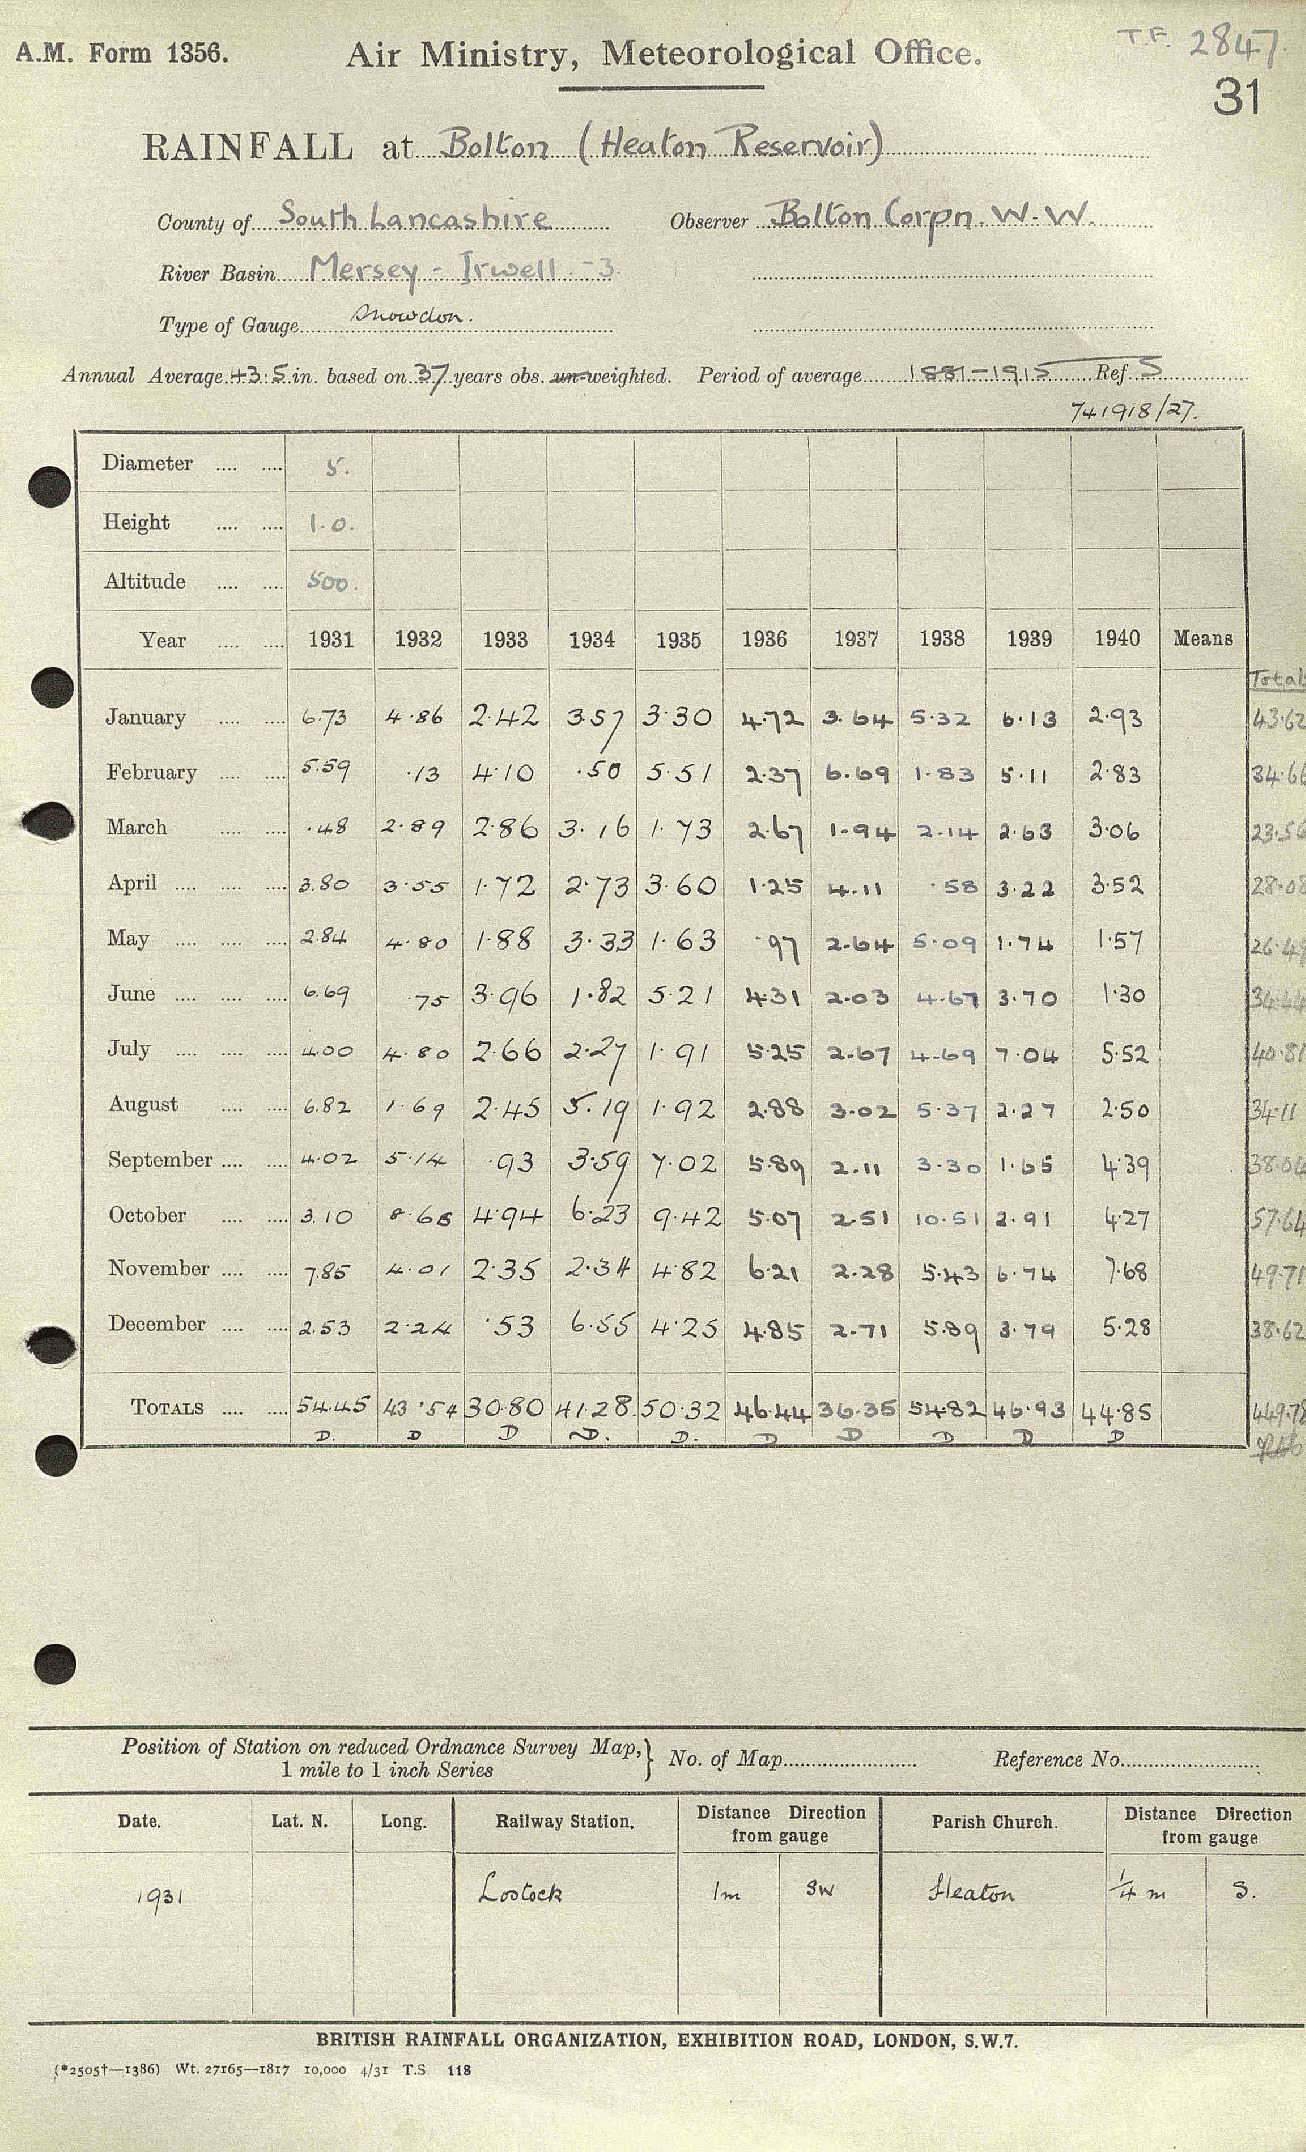 A.M. Form 1356. Air Ministry, Meteorological Office. T.F. 2847.
31
RAINFALL at Bolton (Heaton Reservoir)
County of South Lancashire Observer Bolton Corpn. W.W.
River Basin Mersey - Irwell -3
Type of Gauge Snowdon.
Annual Average 43.5 in. based on 37 years obs. un-weighted. Period of average 1881-1915 Ref. S
741918/27.
Diameter 5.
Height 1.0.
Altitude 500.
Year 1931 1932 1933 1934 1935 1936 1937 1938 1939 1940 Means
Total
January 6.73 4.86 2.42 3.57 3.30 4.72 3.64 5.32 6.13 2.93 43.62
February 5.59 .13 4.10 .50 5.51 2.37 6.69 1.83 5.11 2.83 34.66
March .48 2.89 2.86 3.16 1.73 2.67 1.94 2.14 2.63 3.06 23.56
April 3.80 3.55 1.72 2.73 3.60 1.25 4.11 .58 3.22 3.52 28.08
May 2.84 4.80 1.88 3.33 1.63 .97 2.64 5.09 1.74 1.57 26.49
June 6.69 .75 3.96 1.82 5.21 4.31 2.03 4.67 3.70 1.30 34.44
July 4.00 4.80 2.66 2.27 1.91 5.25 2.67 4.69 7.04 5.52 40.81
August 6.82 1.69 2.45 5.19 1.92 2.88 3.02 5.37 2.27 2.50 34.11
September 4.02 5.14 .93 3.59 7.02 5.89 2.11 3.30 1.65 4.39 38.04
October 3.10 8.68 4.94 6.23 9.42 5.07 2.51 10.51 2.91 4.27 57.64
November 7.85 4.01 2.35 2.34 4.82 6.21 2.28 5.43 6.74 7.68 49.71
December 2.53 2.24 .53 6.55 4.25 4.85 2.71 5.89 3.79 5.28 38.62
TOTALS 54.45 43.54 30.80 41.28 50.32 46.44 36.35 54.82 46.93 44.85 449.78
D. D D D. D. D D D D D
Position of Station on reduced Ordnance Survey Map,} No. of Map Reference No.
1 mile to 1 inch Series
Date. Lat. N. Long. Railway Station. Distance Direction from gauge Parish Church. Distance Direction from gauge
1931 Lostock 1m SW Heaton ¼ m S.
BRITISH RAINFALL ORGANIZATION, EXHIBITION ROAD, LONDON, S.W.7.
(*2505†—1386) Wt. 27165—1817 10,000 4/31 T.S. 118